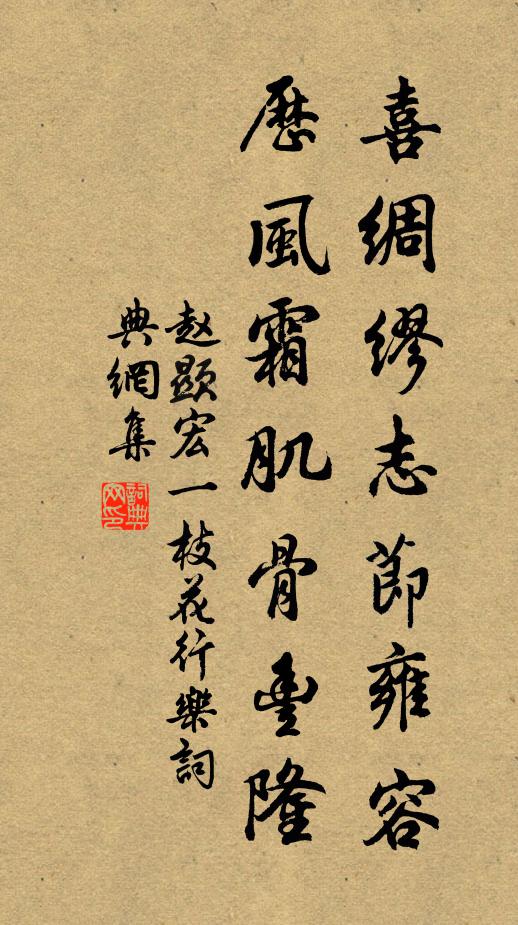 喜綢繆志節雍容
歷風霜肌骨豐隆
赵顯宏一枝花行樂詞
典網集
詞典
网印